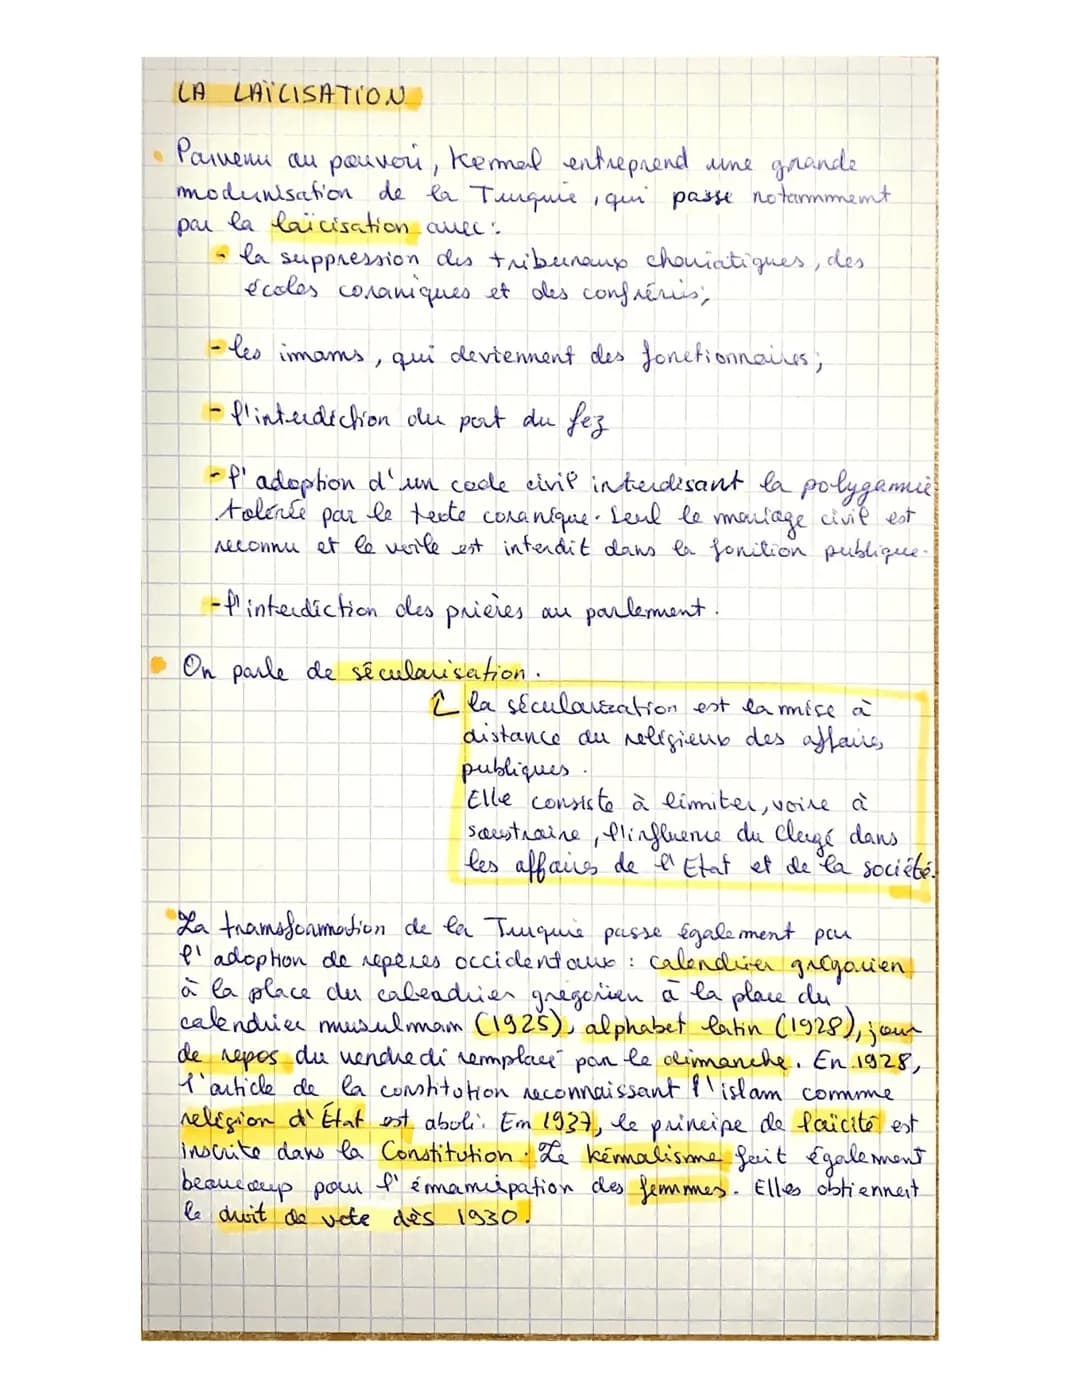 LA LAÏCISATION
• Parvenu au pouvoir, Kemal entreprend une grande
modernisation de la Turquie, qui passe notammment
par la laïcisation avec :
- la suppression des tribunaux chariatiques, des
écoles coraniques et des confréries;
- les imams, qui deviennent des fonctionnaires;
- l'interdiction du port du fez
- l'adoption d'un code civil interdisant la polygamie
tolérée par le texte coranique. Seul le mariage civil est
reconnu et le voile est interdit dans la fonction publique.
- l'interdiction des prières au parlement.
• On parle de sécularisation.
↑ la sécularization est la mise à
distance du religieux des affaires
publiques.
Elle consiste à limiter, voire à
soustraire, l'influence du Clergé dans
les affaires de l'Etat et de la société.
• La transformation de la Turquie passe également par
l'adoption de repères occidentaux : calendrier grégorien
à la place du caleadrier grégorien à la place du
calendrier musulmam (1925), alphabet latin (1928), jour
de repos du vendredi remplacé par le dimanche. En 1928,
l'article de la constitution reconnaissant l'islam comme
religion d'État est aboli. Em 1937, le principe de laïcité est
inscrite dans la Constitution. Le kémalisme fait également
beaucoup pour l'émmancipation des femmes. Elles obtiennent
le droit de vote dès 1930.